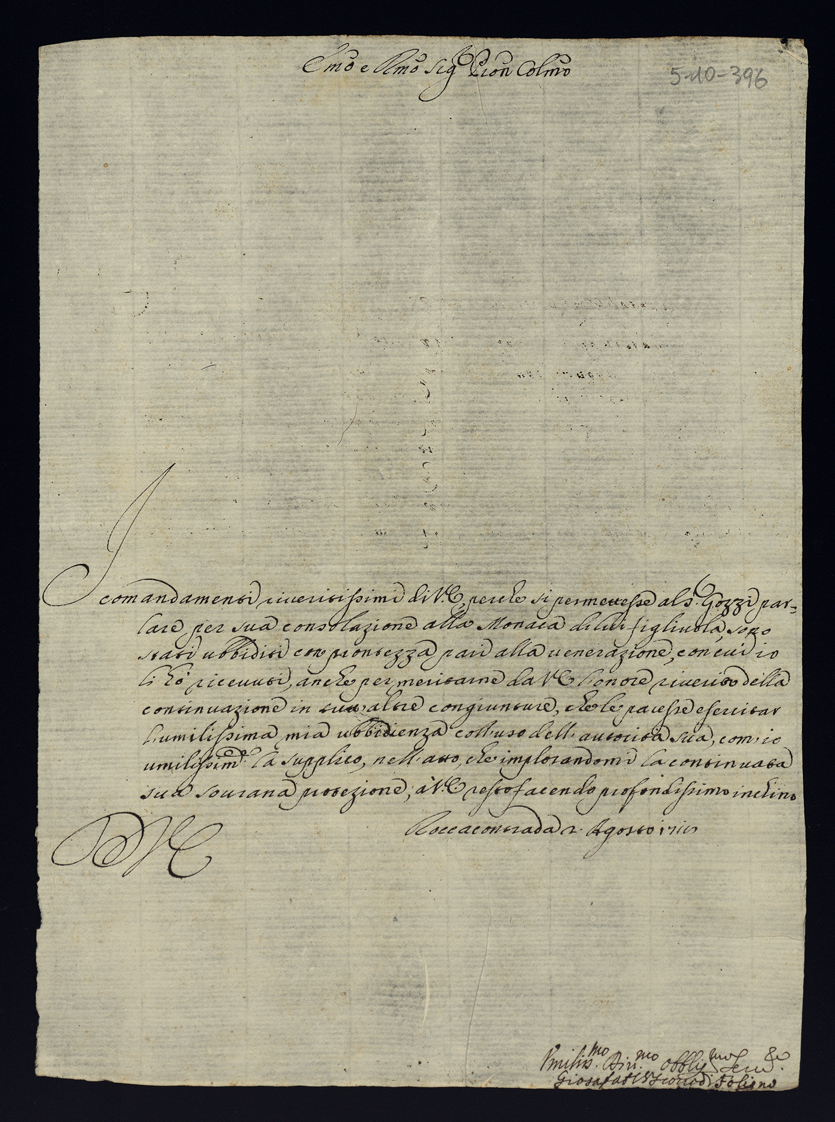 Em̃o e Rm̃o Sig.r P̃ron Colm̃o
5-10-396
I
comandamenti riveritissimi di V.E. perche si permettesse al S.r Gozzi par=
lare per sua consolazione alla Monaca di lui figliuola, sono
stati ubbiditi con prontezza pari alla venerazione, con cui io
li hò ricevuti, anche per meritarne da V.E. l'onore riverito della
continuazione in altre congiunture, che le paresse esercitar
l'umilissima mia ubbidienza coll'uso dell'autorità sua, com'io
umilissim.te la supplico, nell'atto, che implorandomi la continuata
sua sourana protezione, à V.E. resto facendo profondissimo inchino
Roccacontrada 2. Agosto
D V E
Umiliss.mo Div.mo obblig.mo Ser.
Giosafat Vescovo di Foligno